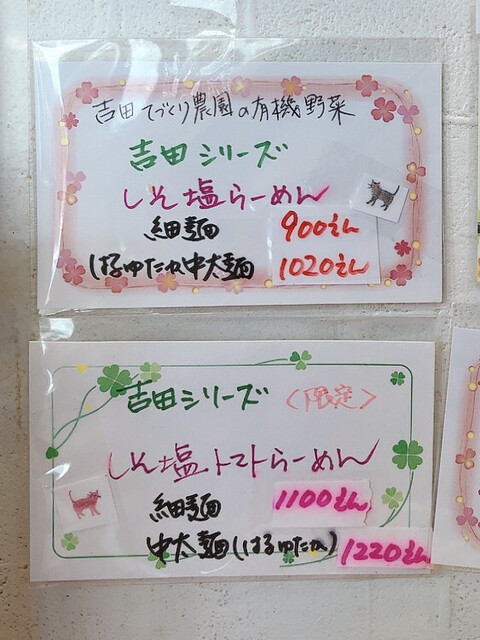 吉田てづくり農園の有機野菜
吉田シリーズ
しそ塩らーめん
細麺 900えん
はるゆたか中太麺 1020えん
吉田シリーズ 〈限定〉
しそ塩トマトらーめん
細麺 1100えん
中太麺(はるゆたか) 1220えん